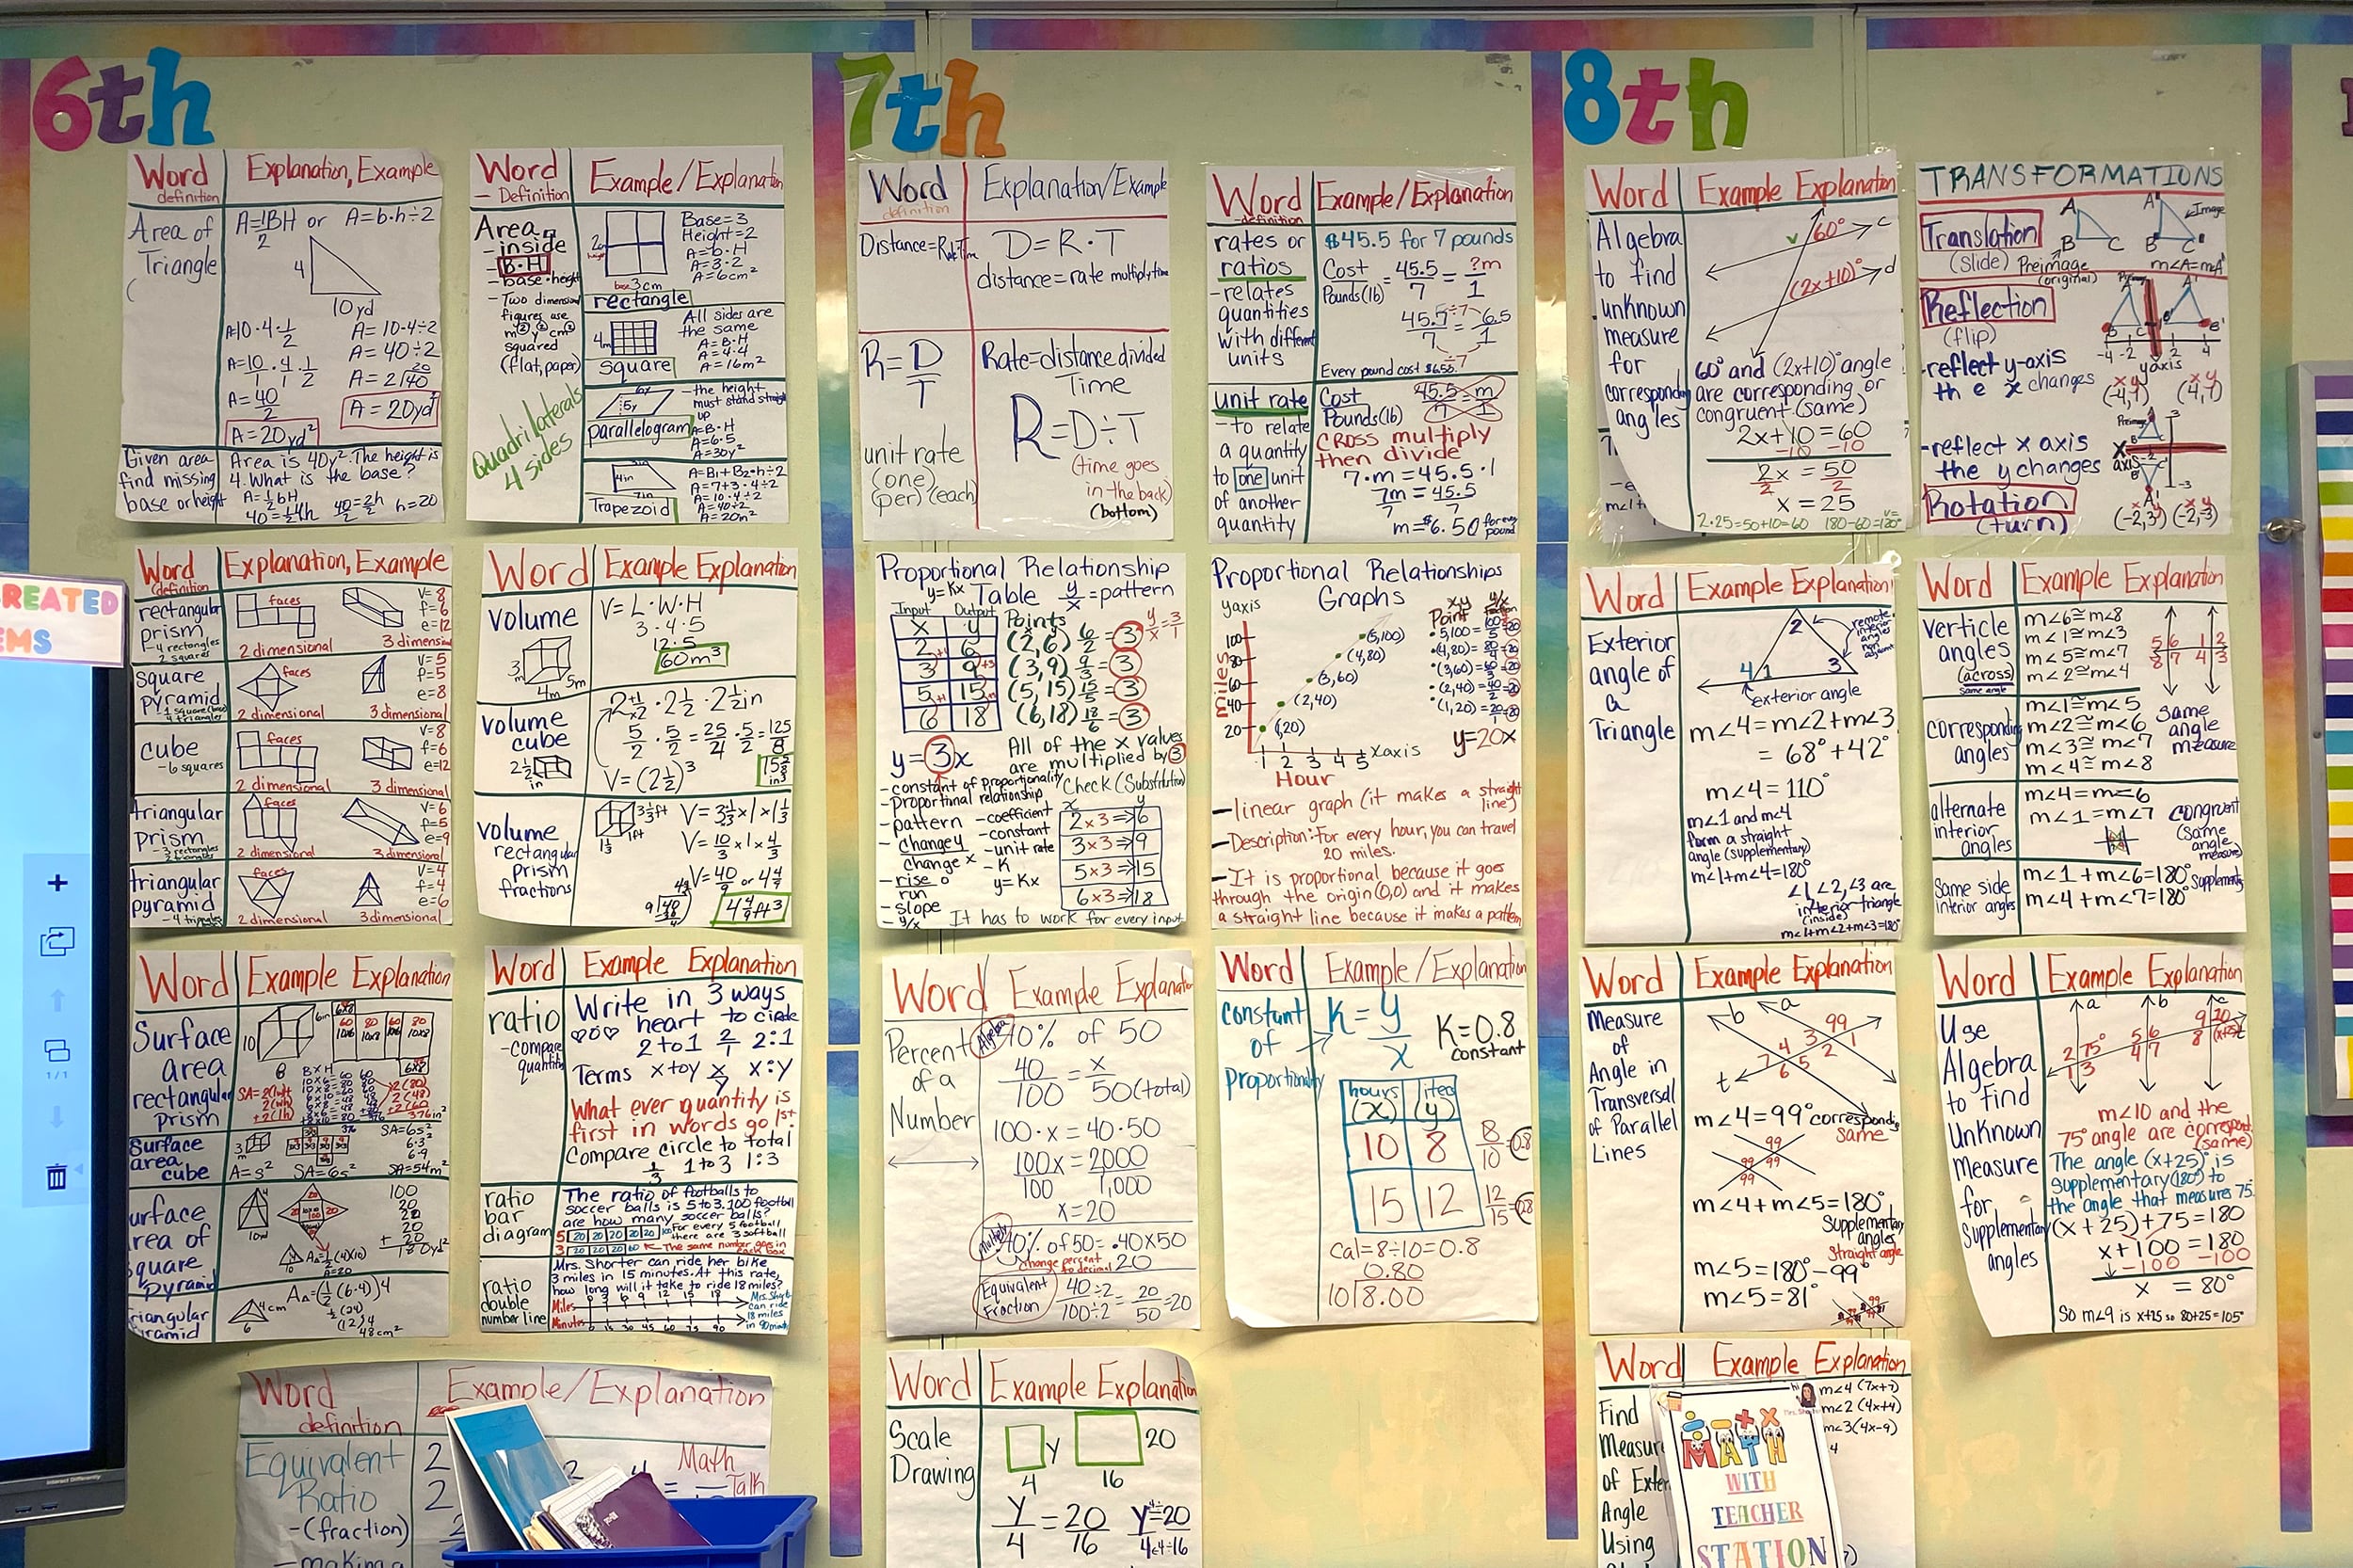 6th
7th
8th
REATED
EMS
1/1
Word
definition
Explanation, Example
Area of
Triangle
A=½BH or A=b·h÷2
4
10yd
A=10·4·½
A=10·4÷2
A=40÷2
A=20yd²
A=20yd²
Given area
find missing
base or height
Area is 40y². The height is
4. What is the base?
A=½bH
h=20
Word
- Definition
Example/Explanation
Area
- inside
- B·H
- base·height
- Two dimension
figures use
squared
(flat, paper)
Quadrilaterals
4 sides
Base=3
Height=2
A=b·H
A=3·2
A=6cm²
3cm
rectangle
All sides are
the same
A=B·H
A=4·4
A=16m²
square
- the height
must stand straight
up
parallelogram
A=B·H
A=6·5
A=30y²
Trapezoid
A=B1+B2·h÷2
A=7+3·4÷2
A=10·4÷2
A=40÷2
A=20in²
Word
definition
Explanation, Example
rectangular
prism
- 4 rectangles
2 squares
faces
2 dimensional
3 dimensional
V=8
f=6
e=12
square
pyramid
faces
2 dimensional
3 dimensional
V=5
f=5
e=8
cube
- 6 squares
faces
2 dimensional
3 dimensional
V=8
f=6
e=12
triangular
prism
faces
2 dimensional
3 dimensional
V=6
f=5
e=9
triangular
pyramid
- 4 triangles
faces
2 dimensional
3 dimensional
V=4
f=4
e=6
Word
Example Explanation
volume
V=L·W·H
3·4·5
12·5
60m³
4m
5m
volume
cube
5/2 · 5/2 = 25/4 · 5/2 = 125/8
V=(2½)³
volume
rectangular
prism
fractions
V=3⅓×1×1⅓
V=10/3×1×4/3
V=40/9 or 4 4/9
4 4/9 ft³
Word
Example Explanation
Surface
area
rectangular
prism
10
8
Surface
area
cube
A=s²
SA=6s²
SA=6s²
6·3²
6·9
SA=54m²
urface
rea of
quare
Pyramid
100
20
20
20
+ 20
180yd²
Triangular
Word
Example Explanation
ratio
- compare
quantity
Write in 3 ways
heart to circle
2 to 1 2/1 2:1
Terms x to y x/y x:y
What ever quantity is
first in words go 1st
Compare circle to total
1/3 1 to 3 1:3
ratio
bar
diagram
The ratio of footballs to
soccer balls is 5 to 3. 100 football
are how many soccer balls?
For every 5 football
there are 3 softball
The same number goes in
each box
ratio
double
number line
Mrs. Shorter can ride her bike
3 miles in 15 minutes. At this rate,
how long will it take to ride 18 miles?
Miles
Minutes
can ride
18 miles
Word
definition
Example/Explanation
Equivalent
Ratio
- (fraction)
- making a
Math
Talk
Word
definition
Explanation/Example
Distance=Rate·Time
D=R·T
distance=rate multiply time
R=D/T
unit rate
(one)
(per) (each)
Rate=distance divided
Time
R=D÷T
(time goes
in the back)
(bottom)
Word
- definition
Example/Explanation
rates or
ratios
- relates
quantities
with different
units
$45.5 for 7 pounds
Cost
Pounds(lb)
45.5/7 = ?m/1
45.5/7 = 6.5/1
unit rate
- to relate
a quantity
to one unit
of another
quantity
Cost
Pounds(lb)
45.5/7 = m/1
cross multiply
then divide
7·m=45.5·1
7m/7=45.5/7
m=$6.50 for every
pound
Proportional Relationship
y=Kx Table y/x=pattern
Input Output Points
x y
2 6 (2,6) 6/2=3
3 9 (3,9) 9/3=3
5 15 (5,15) 15/5=3
6 18 (6,18) 18/6=3
y=3x
All of the x values
are multiplied by 3
- constant of proportionality
- Proportional relationship
- pattern
- change y
change x
- rise
run
- slope
- y/x
- coefficient
- constant
- unit rate
- K
y=Kx
Check (Substitution)
x y
2×3⇒6
3×3⇒9
5×3⇒15
6×3⇒18
It has to work for every input
Proportional Relationships
Graphs
y axis
miles
100
80
60
40
20
1 2 3 4 5 x axis
Hour
(5,100)
(4,80)
(3,60)
(2,40)
(1,20)
Point
y=20x
- linear graph (it makes a straight
line)
- Description: For every hour, you can travel
20 miles.
- It is proportional because it goes
through the origin (0,0) and it makes
a straight line because it makes a pattern
Word
Example Explanation
Percent
of a
Number
Algebra
40% of 50
40/100 = x/50 (total)
100·x=40·50
100x/100 = 2000/100
x=20
Multiply
40% of 50=.40×50
change percent
to decimal 20
Equivalent
Fraction
40÷2/100÷2 = 20/50 = 20
Word
Example/Explanation
constant
of
proportionality
K=y/x
K=0.8
constant
hours
(x) (y)
10 8
15 12
8/10=0.8
12/15=0.8
Cal=8÷10=0.8
0.80
10)8.00
Word
Example Explanation
Scale
Drawing
y
4
20
16
y/4=20/16
Word
Example Explanation
Algebra
to find
unknown
measure
for
corresponding
angles
60°
c
(2x+10)°
d
60° and (2x+10)° angle
are corresponding or
congruent (same)
2x+10=60
-10 -10
2x/2=50/2
x=25
2·25=50+10=60 180-60=120°
TRANSFORMATIONS
Translation
(slide)
Preimage
(original)
Image
A
B
C
A'
B'
C'
m∠A=m∠A'
Reflection
(flip)
- reflect y-axis
the x changes
y axis
(-4,1)
(4,1)
- reflect x axis
the y changes
x
axis
Rotation
(turn)
(-2,3) (-2,-3)
Word
Example Explanation
Exterior
angle of
a
Triangle
2
4
1
3
remote
interior
angles
non
adjacent
exterior angle
m∠4=m∠2+m∠3
=68°+42°
m∠4=110°
m∠1 and m∠4
form a straight
angle (supplementary)
m∠1+m∠4=180°
∠1, ∠2, ∠3 are
interior triangle
(inside)
m∠1+m∠2+m∠3=180°
Word
Example Explanation
verticle
angles
(across)
same angle
m∠6≅m∠8
m∠1≅m∠3
m∠5≅m∠7
m∠2≅m∠4
corresponding
angles
m∠1≅m∠5
m∠2≅m∠6
m∠3≅m∠7
m∠4≅m∠8
same
angle
measure
alternate
interior
angles
m∠4=m=6
m∠1=m∠7
congruent
(same
angle
measure)
Same side
interior angles
m∠1+m∠6=180°
m∠4+m∠7=180°
Word
Example Explanation
Measure
of
Angle in
Transversal
of Parallel
Lines
b
a
t
99
m∠4=99° corresponding
same
m∠4+m∠5=180°
Supplementary
angles
Straight angle
m∠5=180°-99°
m∠5=81°
Word
Example Explanation
Use
Algebra
to find
unknown
measure
for
Supplementary
angles
a
b
c
75°
m∠10 and the
75° angle are correspond
(same)
The angle (x+25)° is
supplementary (180°) to
the angle that measures 75.
(x+25)+75=180
x+100=180
-100 -100
x = 80°
So m∠9 is x+25 so 80+25=105°
Word
Example Explanation
Find
Measure
of Exter
Angle
Using
m∠4 (7x+7)
m∠2 (4x+4)
m∠3 (4x-9)
MATH
WITH
TEACHER
STATION